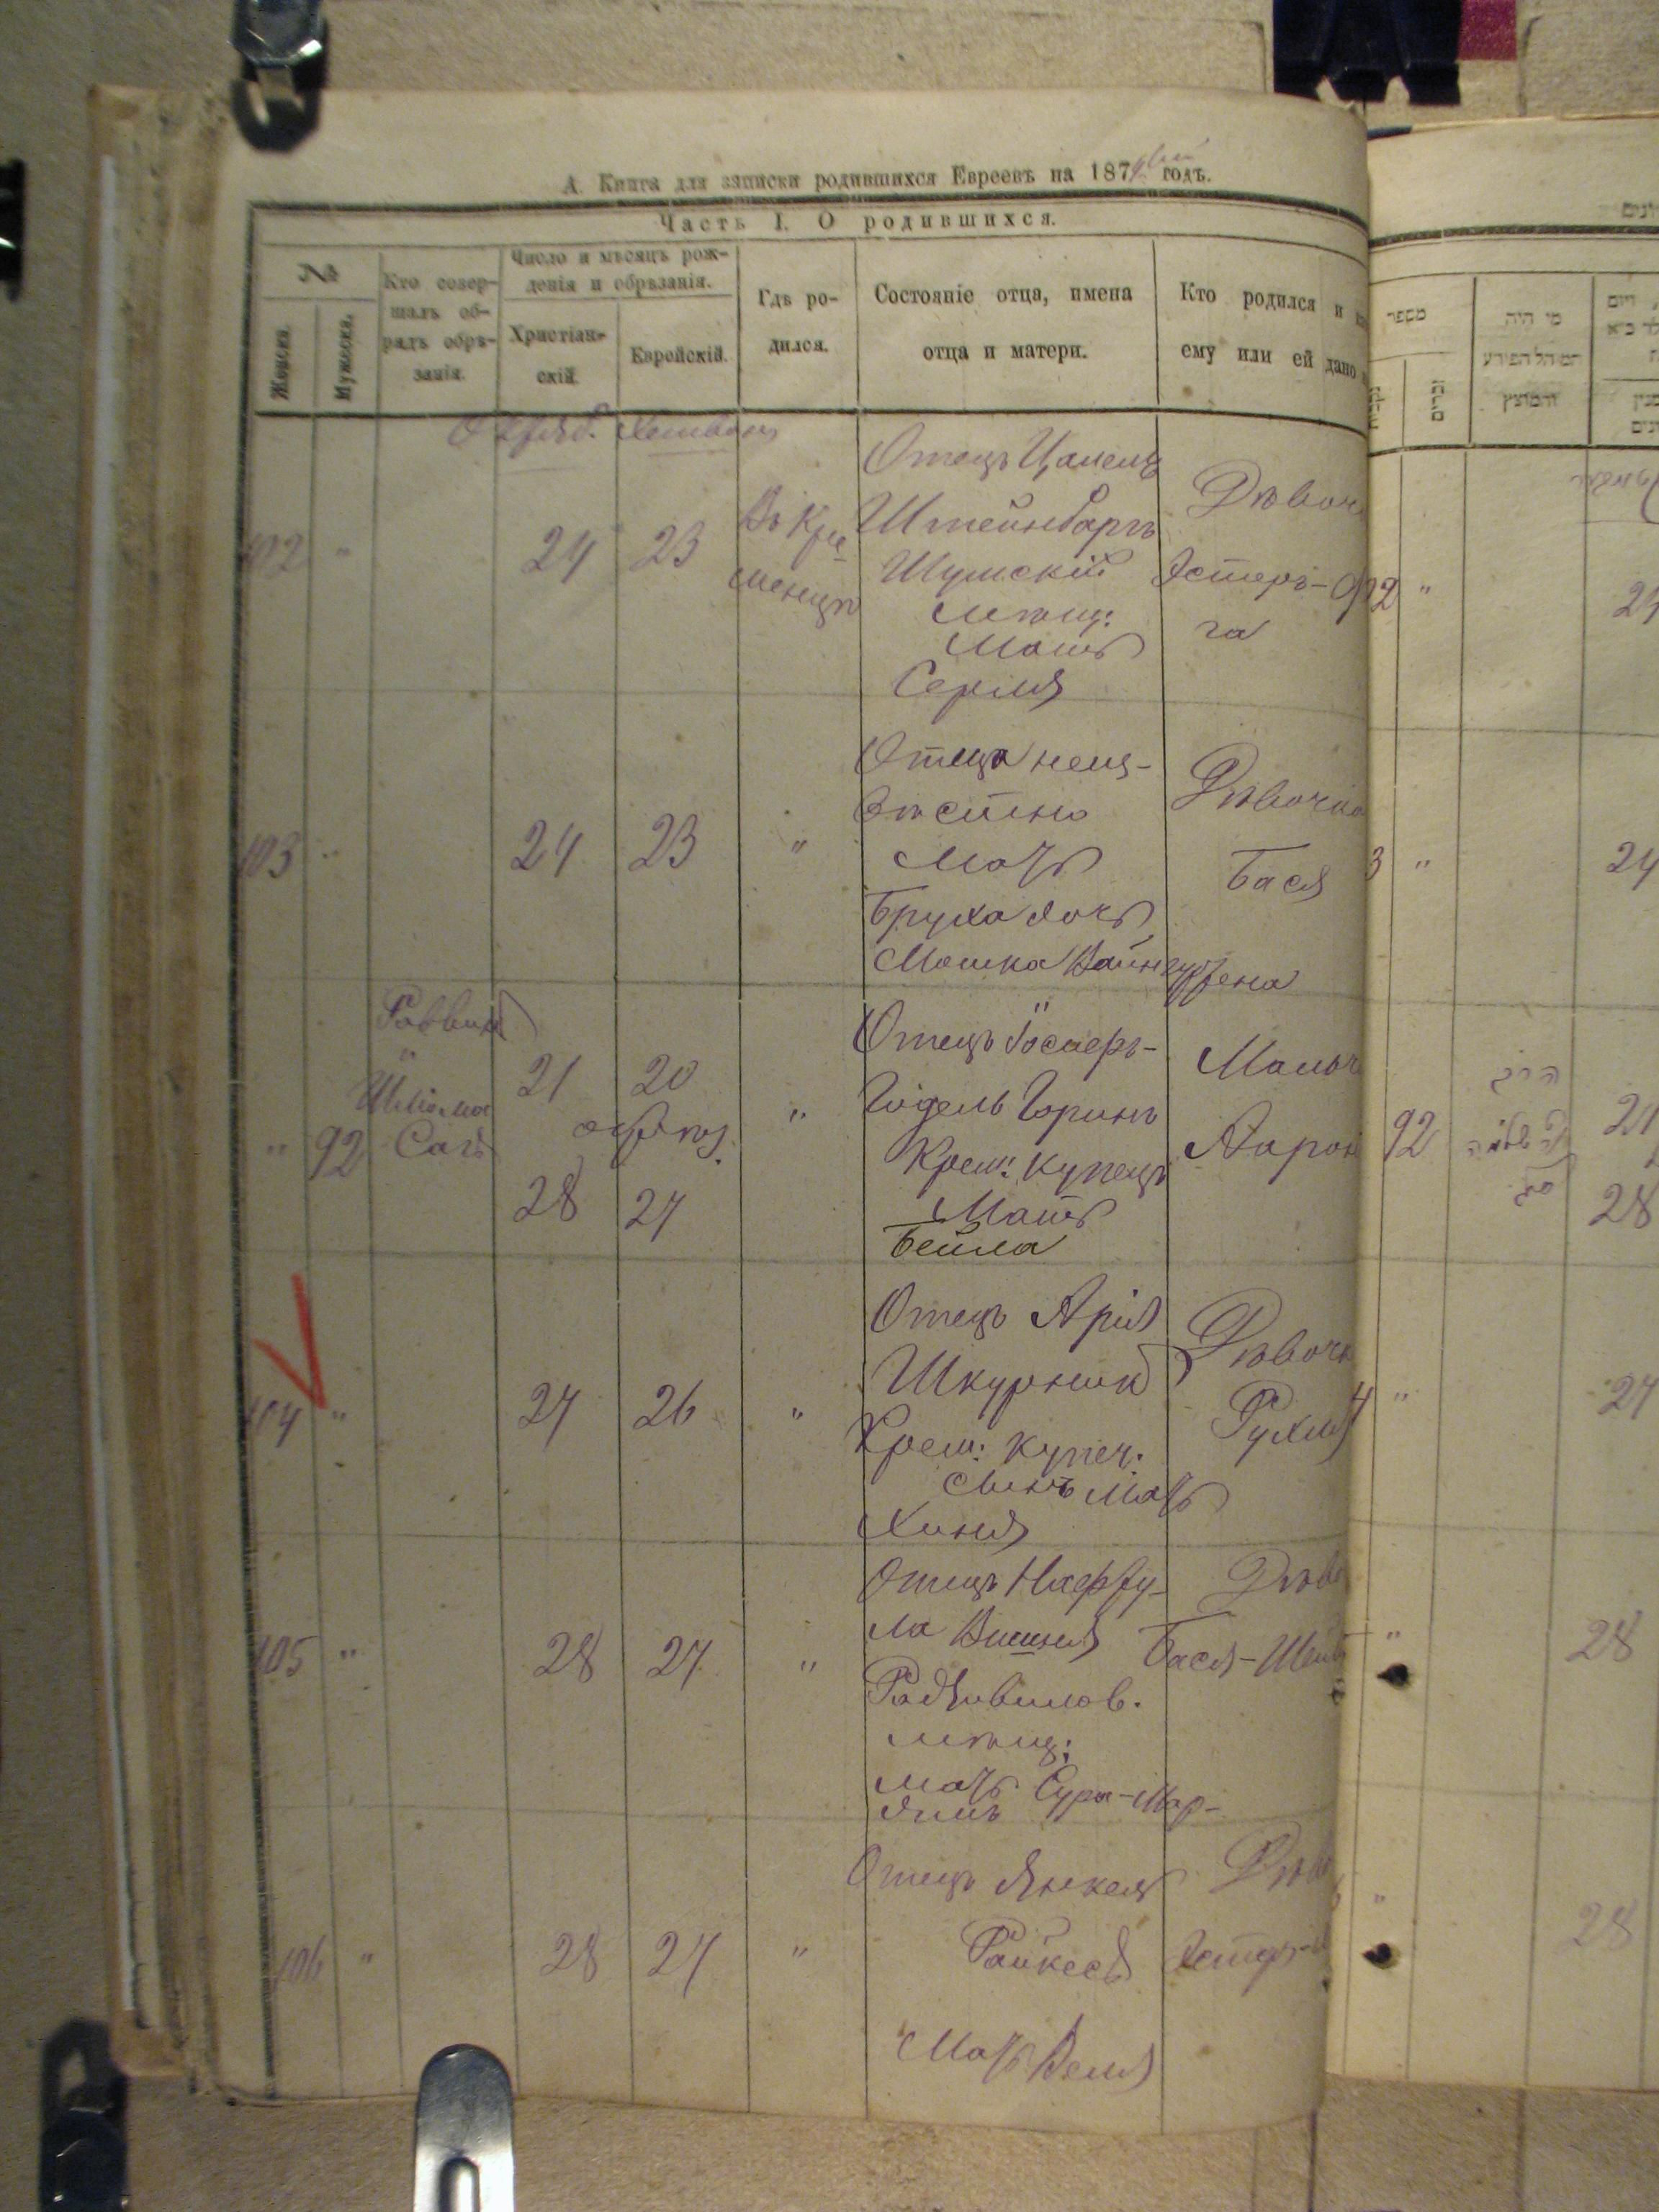 А. Книга для записки родившихся Евреевъ на 1874 годъ.
Часть I. О родившихся.
№
Женска.
Мужеска.
Кто совер-
шалъ об-
рядъ обрѣ-
занія.
Число и мѣсяцъ рож-
денія и обрѣзанія.
Христіан-
скій.
Еврейскій.
Гдѣ ро-
дился.
Состояніе отца, имена
отца и матери.
Кто родился и
ему или ей дано
Октяб. Хешвонъ
102 " 24 23
Въ Кре
менцѣ
Отецъ
Штейнбаргъ
Шумскій
мѣщ:
Мать
Сермя
Дѣвоч
Эстеръ-
га
103 " 24 23 "
Отецъ неиз-
вѣстно
Мать
Бруха дочь
Мошка Вайнгурфена
Дѣвочка
Бася
" 92
Раввинъ
Шліома
21 20
обрѣз.
28 27
"
Отецъ
Гидель Горинъ
Крем: купецъ
Мать
Бейла
Мальч
Аарон
104 " 27 26 "
Отецъ Арія
Шкурник
Крем: купеч.
сынъ Мать
Хиня
Дѣвочк
Рухля
105 " 28 27 "
Отецъ Нафту-
ла Вишня
Радзивилов.
мѣщ:
мать Сура-Мар-
ямъ
Дѣво
Бася-Шей
106 " 28 27 "
Отецъ Янкель
Райкесъ
Мать Веля
Дѣв
Эстер-
מספר
זכרים
מי היה
המוהל הפורע
והמוצץ
2 " 24
3 " 24
92 21
28
4 " 27
" 28
" 28